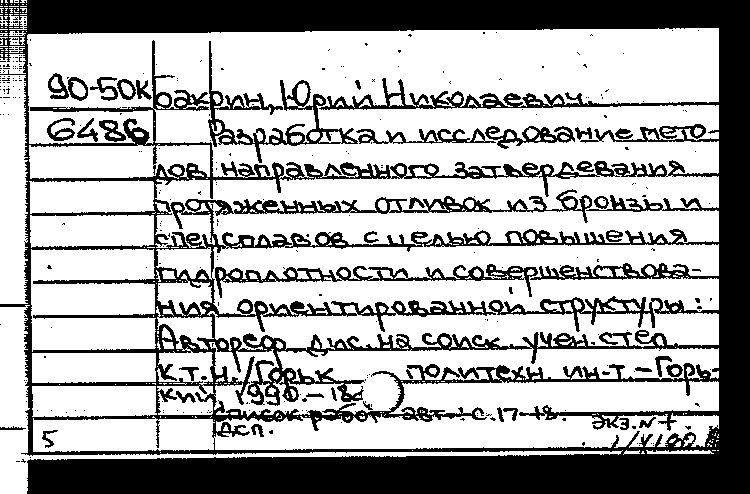 90-50к Бакрин, Юрий Николаевич.
6486 Разработка и исследование мето-
дов направленного затвердевания
протяженных отливок из бронзы и
спецсплавов с целью повышения
гидроплотности и совершенствова-
ния ориентированной структуры :
Автореф. дис. на соиск. учен. степ.
к.т.н. / Горьк политехн. ин-т. - Горь-
кий, 1990. - 18с
список работ авт.: с. 17-18.
Дсп. экз. N
5